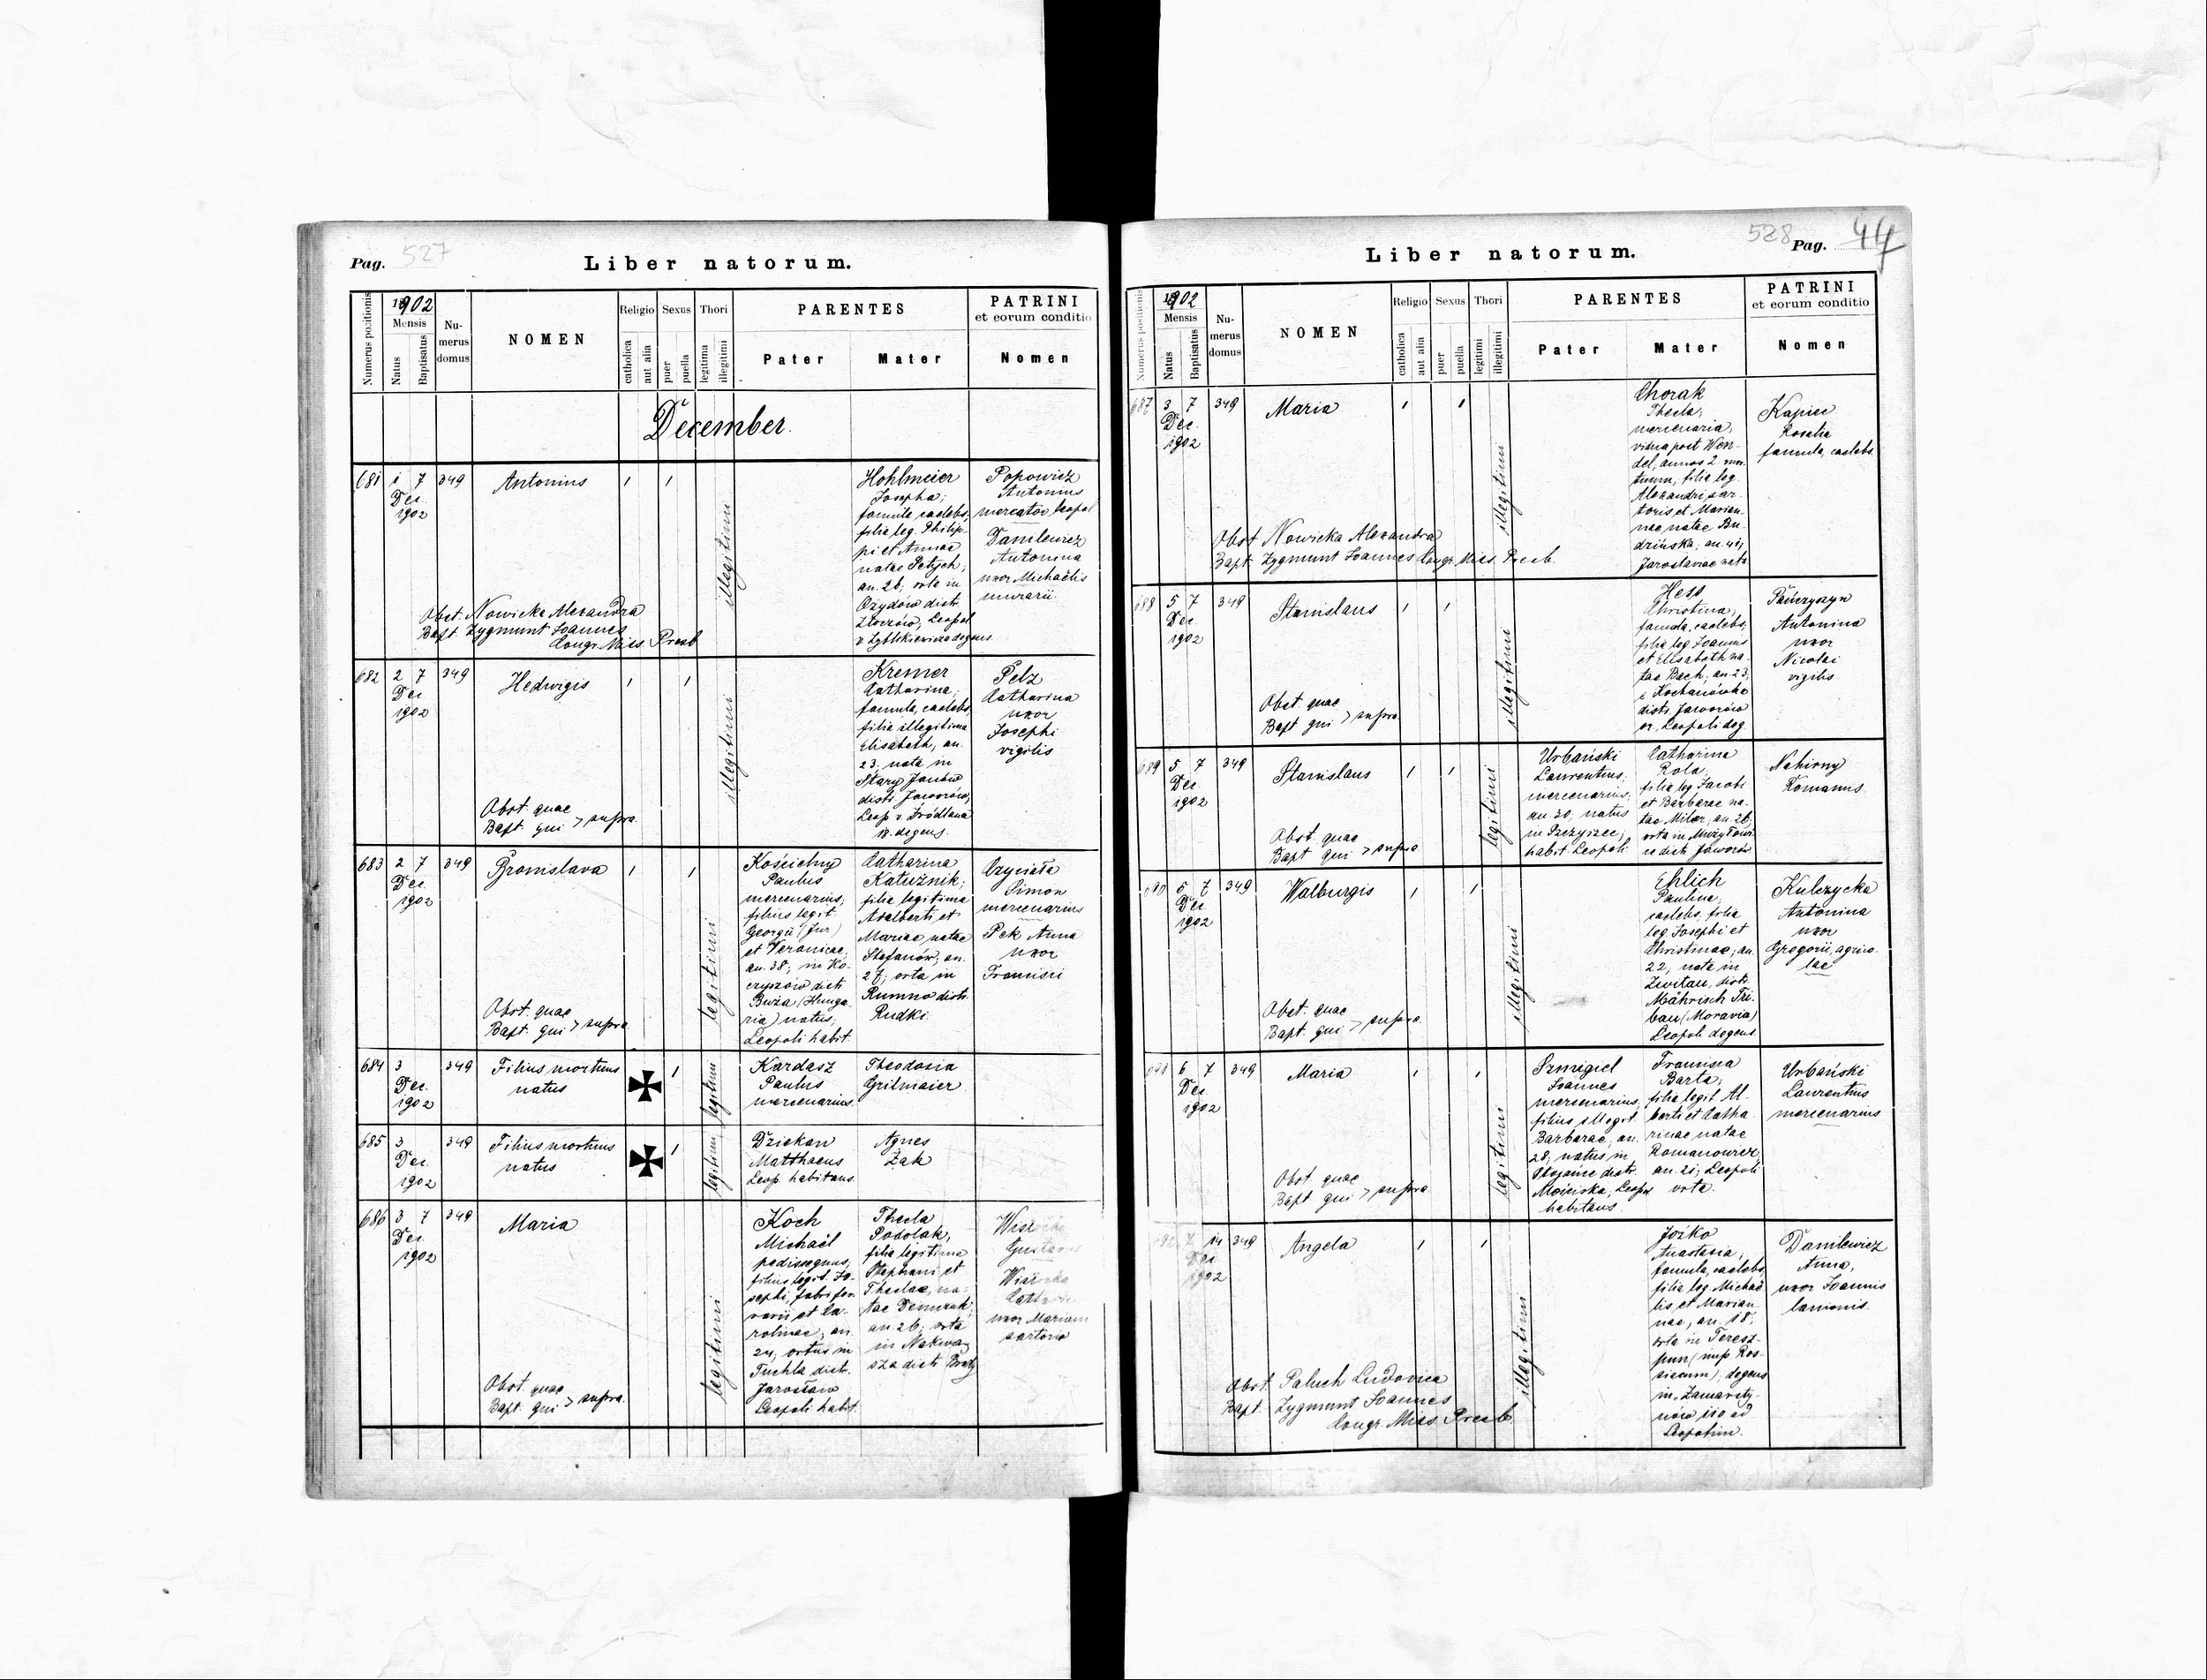 Pag. 527
Liber natorum.
Numerus positionis
1902
Mensis
Natus
Baptisatus
Nu-
merus
domus
NOMEN
Religio
catholica
aut alia
Sexus
puer
puella
Thori
legitima
illegitimi
PARENTES
Pater
Mater
PATRINI
et eorum conditio
Nomen
December.
681
1 7
Dec.
1902
349
Antonius
illegitimi
Hohlmeier
Josepha;
famula caelebs,
filia leg. Philip-
pi et Annae
natae
an. 26, orta in
Ożydów distr.
Złoczów, Leopol
Popowicz
Antonius
mercator Leopol
Danilewicz
Antonina
uxor Michaëlis
murarii
Obst. Nowicka Alexandra
Bapt. Zygmunt Joannes
Congr. Miss. Presb
682
2 7
Dec
1902
349
Hedwigis
illegitimi
Kremer
Catharina,
famula, caelebs,
filia illegitima
Elisabeth, an.
23, nata in
Stary Janów
distr. Jaworów,
degens.
Pelz
Catharina
uxor
Josephi
vigilis
Obst. quae
Bapt. qui > supra.
683
2 7
Dec.
1902
349
Bronislava
legitimi
Kościelny
Paulus
mercenarius,
filius legit.
Georgii (Jur)
et Veronicae,
an. 38, in Ko-
distr.
(Hunga-
ria) natus,
Leopoli habit.
Catharina
Kałużnik,
filia legitima
Adalberti et
Mariae, natae
Stefanów, an.
27, orta in
Rumno distr.
Rudki
Simon
mercenarius
Pek Anna
uxor
Francisci
Obst. quae
Bapt. qui > supra
684
3
Dec.
1902
349
Filius mortuus
natus
legitimi
Kardasz
Paulus
mercenarius.
Theodosia
Grilmaier
685
3
Dec.
1902
349
Filius mortuus
natus
legitimi
Dziekan
Matthaeus
Leop. habitans
Agnes
Żak
686
3 7
Dec.
1902
349
Maria
legitimi
Koch
Michaël
pedissequus,
filius legit. Jo-
sephi, fabri fer-
rarii et Ca-
rolinae, an.
24, ortus in
Tuchla distr.
Jarosław
Leopoli habit.
Thecla
Podolak,
filia legitima
Stephani et
Theclae, na-
tae Demczuk,
an. 26, orta
in Nakwa-
sza distr. Brody
uxor Mariani
sartoris
Obst. quae
Bapt. qui > supra.
528 Pag. 44
Liber natorum.
Numerus positionis
1902
Mensis
Natus
Baptisatus
Nu-
merus
domus
NOMEN
Religio
catholica
aut alia
Sexus
puer
puella
Thori
legitimi
illegitimi
PARENTES
Pater
Mater
PATRINI
et eorum conditio
Nomen
687
3 7
Dec.
1902
349
Maria
illegitimi
Chorak
Thecla,
mercenaria,
vidua post Wen-
del, annos 2 mor-
tuum, filia leg.
Alexandri, sar-
toris et Marian-
nae natae Bu-
dzińska, an. 41,
Jaroslaviae nata
Kapiec
Rosalia
famula, caelebs.
Obst Nowicka Alexandra
Bapt. Zygmunt Joannes Congr. Miss. Presb.
688
5 7
Dec
1902
349
Stanislaus
illegitimi
Hess
Christina,
famula, caelebs,
filia leg Joannis
et Elisabeth na-
tae Bech, an 23,
e Kochanówka
distr. Jaworów
or., Leopoli deg.
Pańczyszyn
Antonina
uxor
Nicolai
vigilis
Obst. quae
Bapt qui > supra.
689
5 7
Dec
1902
349
Stanislaus
legitimi
Urbański
Laurentius,
mercenarius,
an. 30, natus
in Szczyrzec,
habit Leopoli
Catharina
Rola,
filia leg Jacobi
et Barbarae na-
tae Milar, an 26,
orta in
distr Jaworów
Nahirny
Romanus
Obst. quae
Bapt qui > supra
690
6 7
Dec.
1902
349
Walburgis
illegitimi
Ehlich
Paulina,
caelebs, filia
leg Josephi et
Christinae, an.
22, nata in
Zwitau, distr.
Mährisch Trü-
bau (Moravia)
Leopoli degens
Kulczycka
Antonina
uxor
Gregorii, agrico-
lae
Obst. quae
Bapt. qui > supra.
691
6 7
Dec
1902
349
Maria
legitimi
Szmigiel
Joannes
mercenarius,
filius illegit.
Barbarae, an.
28, natus in
distr.
Mościska, Leopoli
habitans
Francisca
Barta,
filia legit Al-
berti et Catha-
rinae natae
Romanowicz,
an. 21, Leopoli
orta.
Urbański
Laurentius
mercenarius
Obst. quae
Bapt qui > supra.
692
7 14
Dec
1902
349
Angela
illegitimi
Jośko
Anastasia,
famula, caelebs,
filia leg Michaë-
lis et Marian-
nae, an. 18,
orta in Teresz-
pun (imp. Ros-
siacum), degens
in Zamarsty-
nów, 110 ad
Leopolim.
Danilewicz
Anna,
uxor Joannis
lanionis.
Obst. Paluch Ludovica
Bapt. Zygmunt Joannes
Congr. Miss Presb.